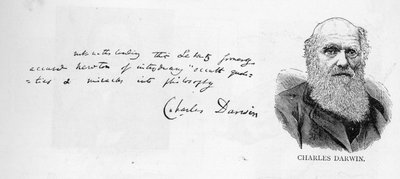 notwithstanding that Leibnitz formerly
accused Newton of introducing "occult quali-
ties & miracles into philosophy
Charles Darwin
CHARLES DARWIN.